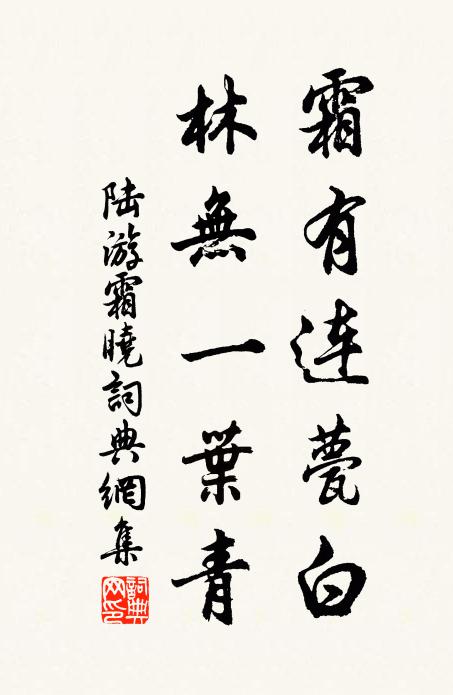 霜有連甍白
林無一葉青
陸游霜曉詞典網集
詞典網印